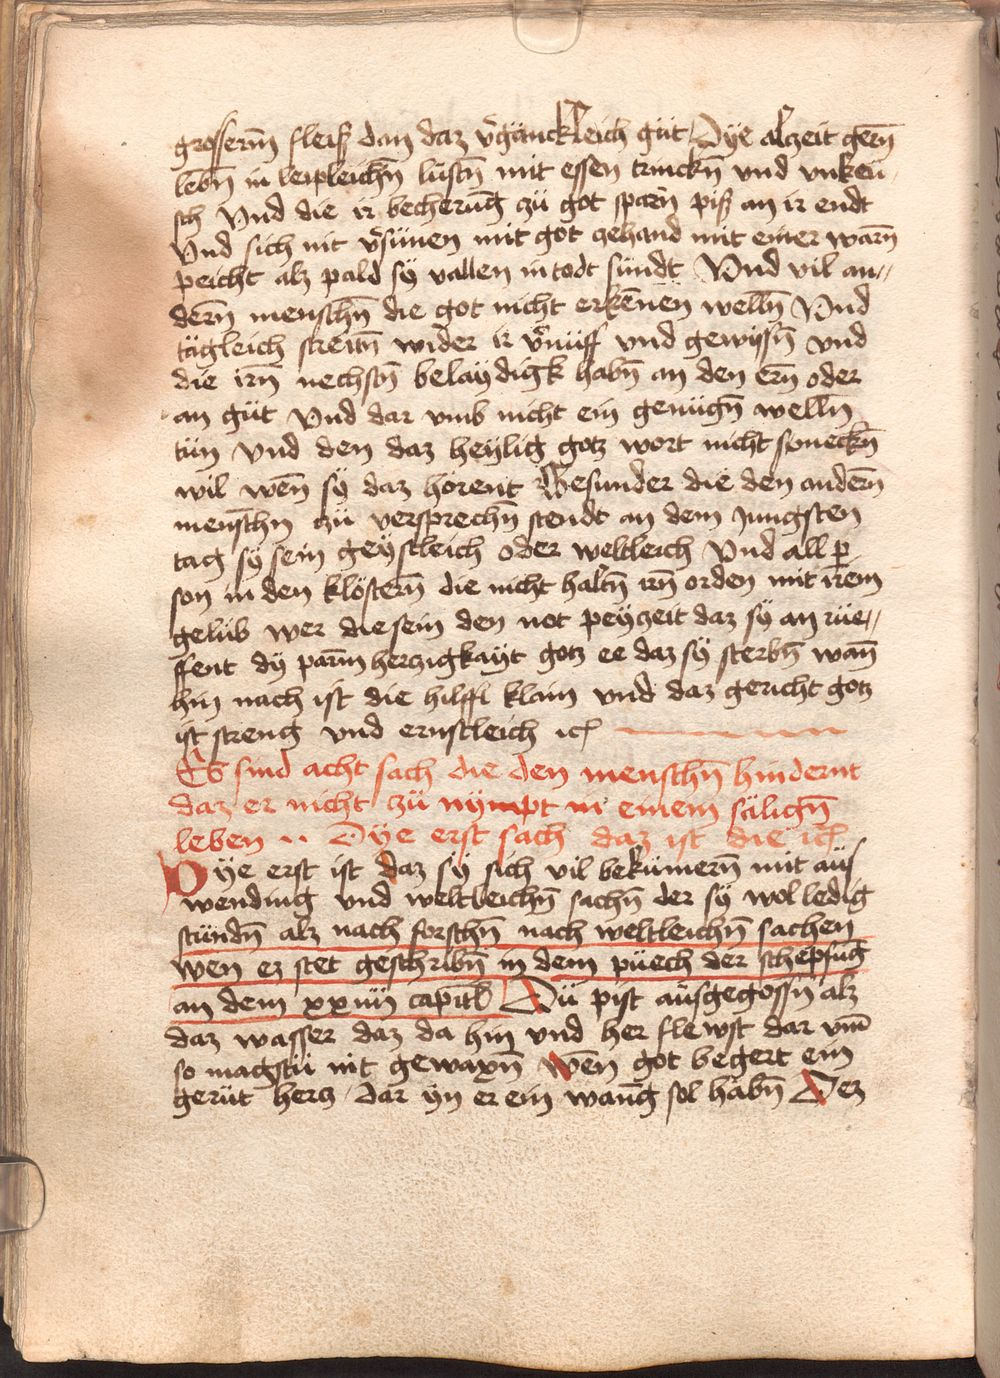 grosserm̄ fleiß dan daz v̄gänckleich güt Dye alzeit gerñ
lebñ in leipleichñ lüstñ mit essen trinckñ vnd vnkeu-
sch Vnd die ir becherung zü got sparñ piß an ir endt
Vnd sich nit v̄sünen mit got zehand mit einer warñ
peicht alz pald sÿ vallen in todt sündt Vnd vil an-
derñ menschñ die got nicht erkēnen wellñ Vnd
tägleich streitñ wider ir v̄nüff vnd gewissñ vnd
die irñ nechstñ belaÿdigk habñ an den erñ oder
an güt Vnd dar vmb nicht ein genügñ wellñ
tün Vnd den daz heÿlig gotz wort nicht smeckñ
wil wēn sÿ daz horent Besunder die den anderñ
menschñ zü versprechñ stendt an dem Jungsten
tag sÿ sein geÿstleich oder weltleich Vnd all p̲
son in den klösterñ die nicht haltñ irñ orden mit irem
gelüb wer die sein den not peÿzeit daz sÿ an rüe-
ffent dÿ parm̄hertzigkaÿt gotz ee daz sÿ sterbñ wañ
hin nach ist die hilffl klain vnd daz gericht gotz
ist streng vnd ernstleich ꝛc
Es sind acht sach die den menschñ hindernt
daz er nicht zü nÿmpt in einem säligñ
leben .. Dÿe erst sach daz ist die ꝛc
Dÿe erst ist daz sÿ sich vil bekümerñ mit aus
wending vnd weltleichñ sachñ der sÿ wol ledig
stündñ alz nach forschñ nach weltleichñ sachen
wen ez stet geschribñ in dem püech der schepfūg
an dem xxiiii capitl Dü pist aüsgegossñ alz
daz wasser daz da hin vnd her flewst dar vm̄
so magstü nit gewaxñ wēn got begert ein
gerüt hertz dar ÿn er ein wanūg sol habñ Dez